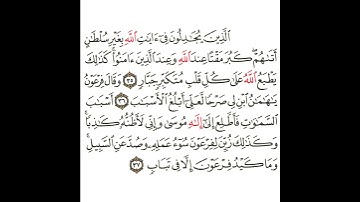 الَّذِينَ يُجَٰدِلُونَ فِىٓ ءَايَٰتِ ٱللَّهِ بِغَيْرِ سُلْطَٰنٍ
أَتَىٰهُمْ ۖ كَبُرَ مَقْتًا عِندَ ٱللَّهِ وَعِندَ ٱلَّذِينَ ءَامَنُوا۟ ۚ كَذَٰلِكَ
يَطْبَعُ ٱللَّهُ عَلَىٰ كُلِّ قَلْبِ مُتَكَبِّرٍ جَبَّارٍ ٣٥ وَقَالَ فِرْعَوْنُ
يَٰهَٰمَٰنُ ٱبْنِ لِى صَرْحًا لَّعَلِّىٓ أَبْلُغُ ٱلْأَسْبَٰبَ ٣٦ أَسْبَٰبَ
ٱلسَّمَٰوَٰتِ فَأَطَّلِعَ إِلَىٰٓ إِلَٰهِ مُوسَىٰ وَإِنِّى لَأَظُنُّهُۥ كَٰذِبًا ۚ
وَكَذَٰلِكَ زُيِّنَ لِفِرْعَوْنَ سُوٓءُ عَمَلِهِۦ وَصُدَّ عَنِ ٱلسَّبِيلِ ۚ
وَمَا كَيْدُ فِرْعَوْنَ إِلَّا فِى تَبَابٍ ٣٧